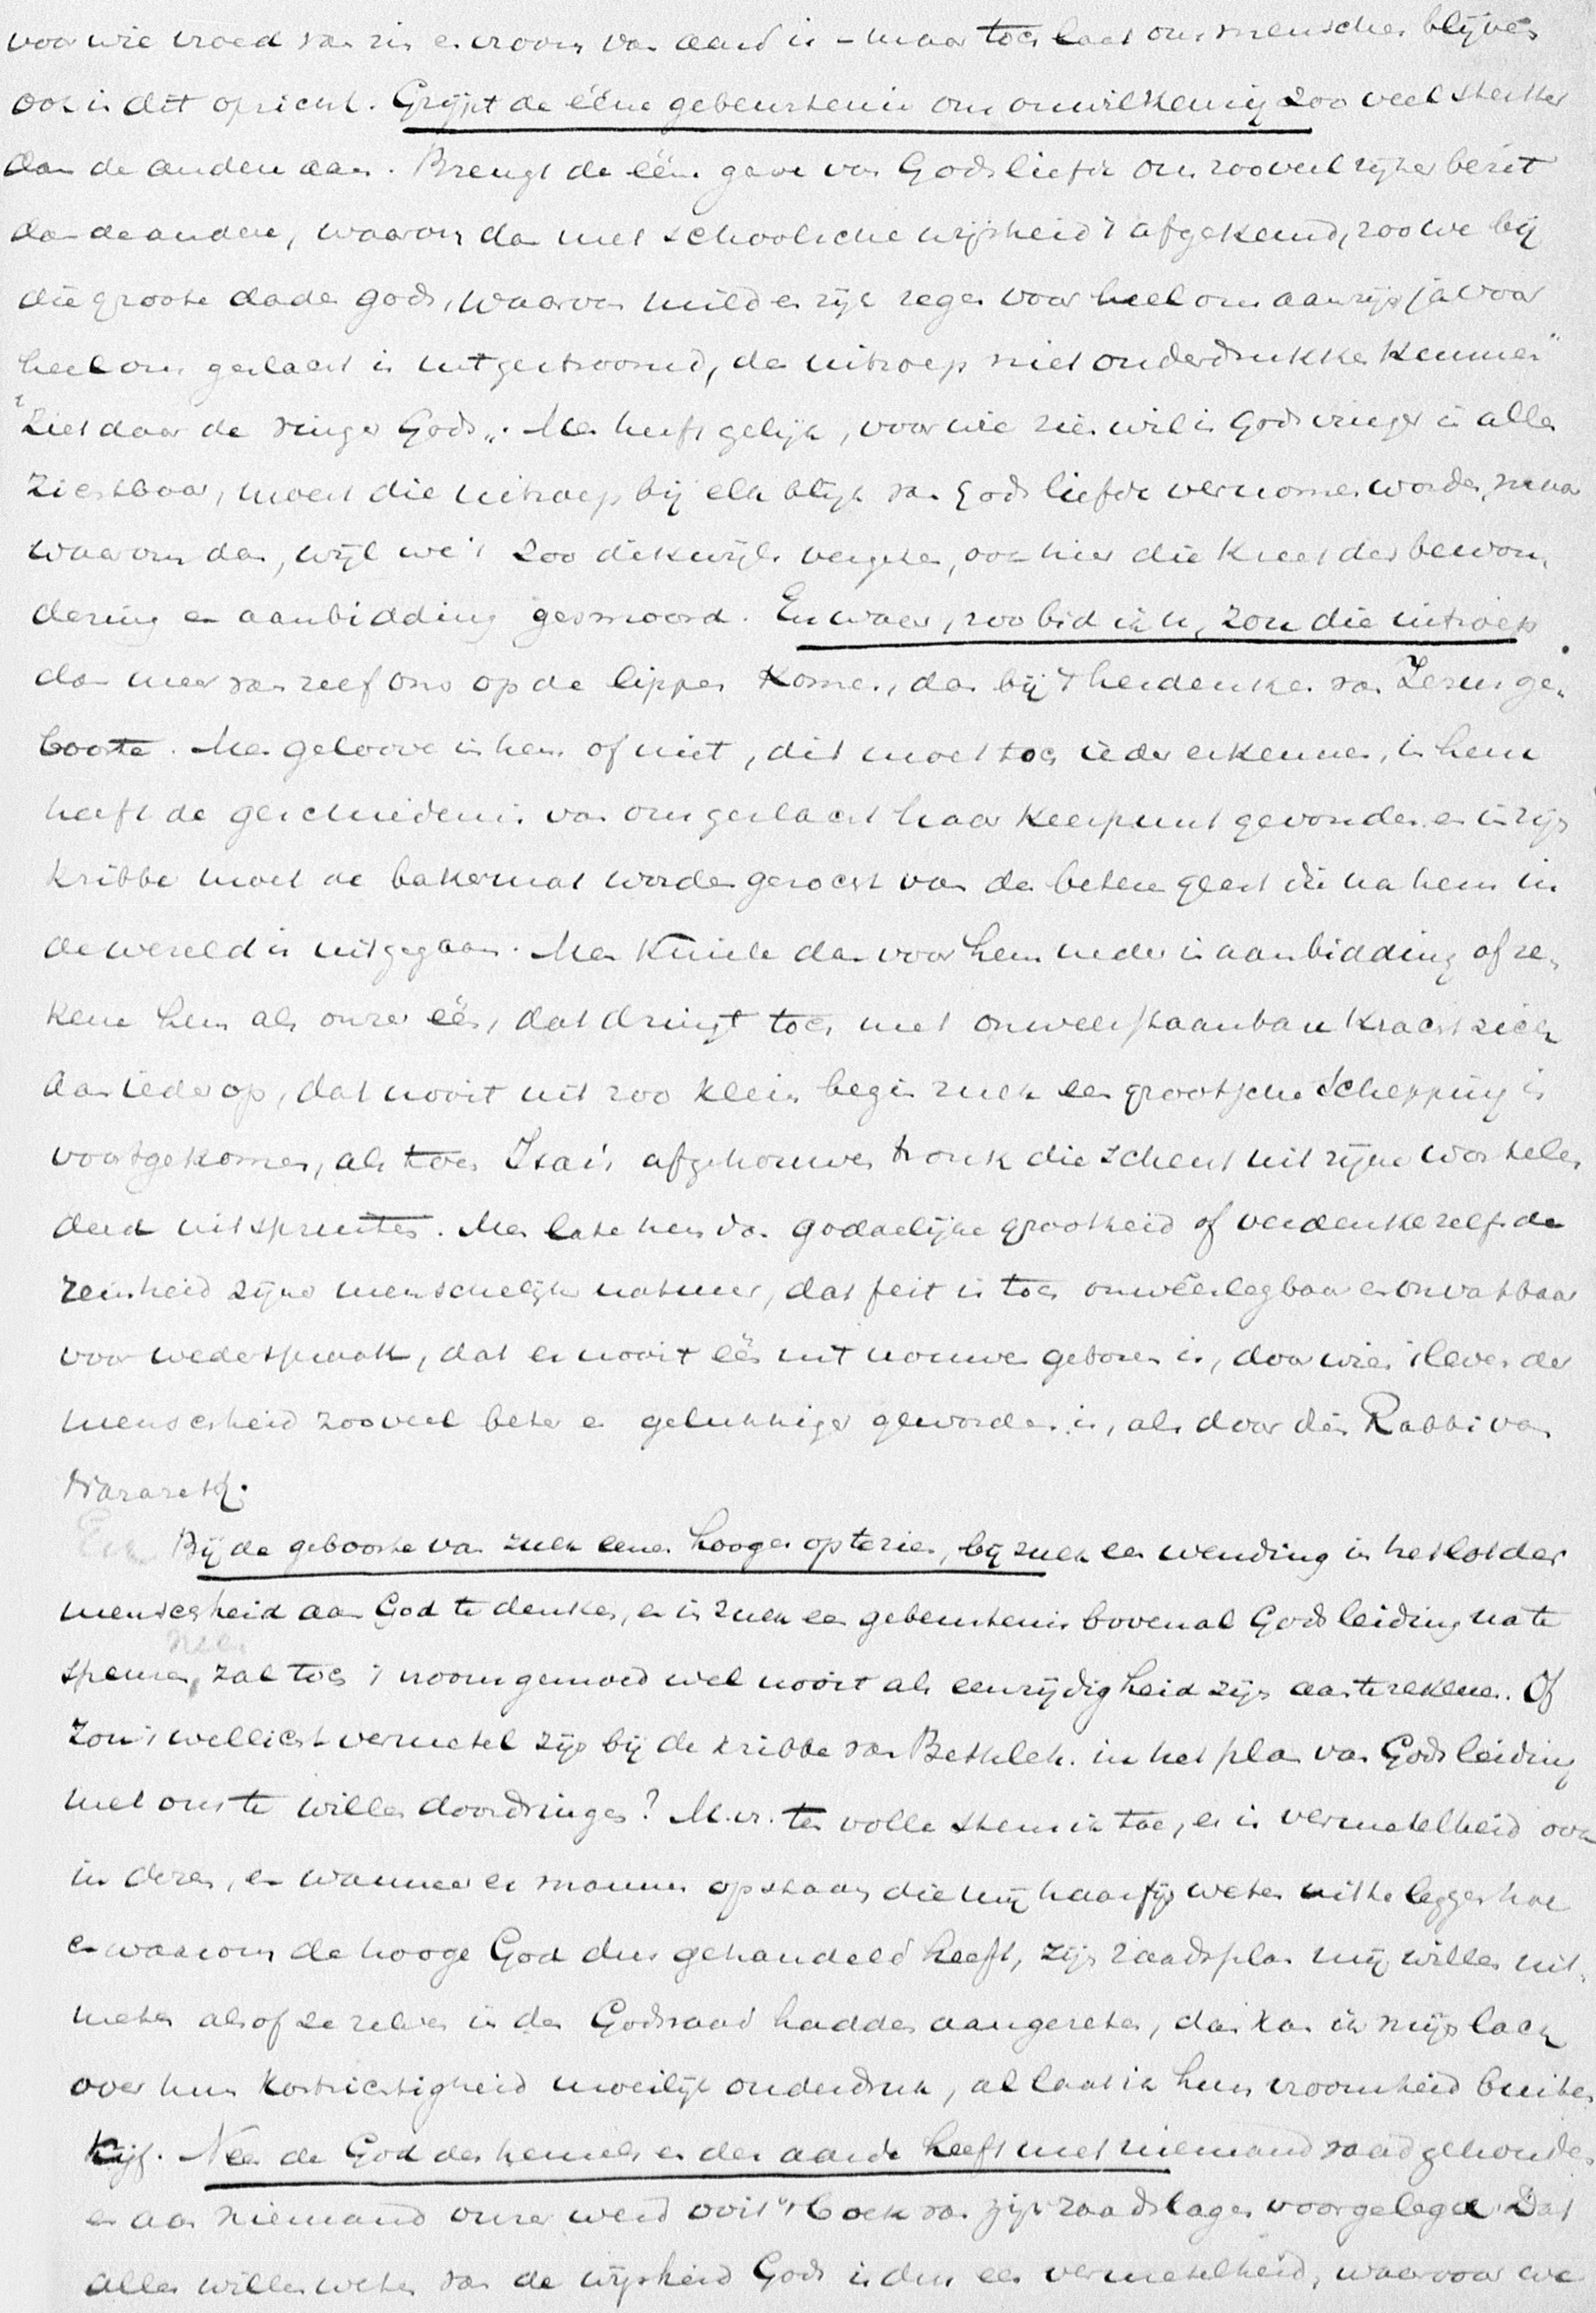 voor wie vroed van zin en vroom van aard is – maar toch laat ons menschen blijven
ook in dit opzicht. Grijpt de ééne gebeurtenis ons onwillekeurig zoo veel sterker
dan de andere aan. Brengt de ééne gave van Gods liefde ons zooveel rijker bezit
dan de andere, waarom dan met schoolsche wijsheid 't afgekeurd, zoo we bij
die groote daden Gods, waarvan milder rijker zegen voor heel ons aanzijn ja voor
heel ons geslacht is uitgestroomd, den uitroep niet onderdrukken kunnen"
"Ziet daar de vinger Gods„. Men heeft gelijk, voor wie zien wil is Gods vinger in alles
zichtbaar, moest die uitroep bij elk blijk van Gods liefde vernomen worden, maar
waarom dan, wijl we 't zoo dikwijls vergeten, ook hier die kreet der bewon„
dering en aanbidding gesmoord. En waar, zoo bid ik u, zou die uitroep
dan meer van zelf ons op de lippen komen, dan bij 't herdenken van Jezus ge„
boorte. Men geloove in hem of niet, dit moet toch ieder erkennen, in hem
heeft de geschiedenis van ons geslacht haar keerpunt gevonden en in zijn
kribbe moet de bakermat worden gezocht van den beteren geest die na hem in
de wereld is uitgegaan. Men kniele dan voor hem neder in aanbidding of re„
kene hem als onzer één, dat dringt toch met onweerstaanbare kracht zich
aan ieder op, dat nooit uit zoo klein begin zulk een grootsche schepping is
voortgekomen, als toen Isaï's afgehouwen tronk die scheut uit zijne wortelen
deed uitspruiten. Men late hem dan goddelijke grootheid of verdenke zelfs de
reinheid zijner menschelijke natuur, dat feit is toch onwêerlegbaar en onvatbaar
voor wederspraak, dat er nooit één uit vrouwen geboren is, door wien 't leven der
menschheid zooveel beter en gelukkiger geworden is, als door dien Rabbi van
Nazareth.
En Bij de geboorte van zulk eenen hooger op te zien, bij zulk een wending in het lot der
menschheid aan God te denken, en in zulk een gebeurtenis bovenal Gods leiding na te
speuren, neen zal toch 't vroom gemoed wel nooit als eenzijdigheid zijn aan te rekenen. Of
zou 't wellicht vermetel zijn bij de kribbe van Bethleh. in het plan van Gods leiding
met ons te willen doordringen? M.v. ten volle stem ik toe, er is vermetelheid ook
in dezen, en wanneer er mannen opstaan die mij haarfijn weten uit te leggen hoe
en waarom de hooge God dus gehandeld heeft, zijn raadsplan mij willen uit„
meten alsof ze zelven in den Godsraad hadden aangezeten, dan kan ik mijn lach
over hun kortzichtigheid moeilijk onderdruk, al laat ik hun vroomheid buiten
kijf. Neen de God des hemels en der aarde heeft met niemand raad gehouden
en aan niemand onzer werd ooit 't boek van zijn raadslagen voorgelegd. Dat
alles willen weten van de wijsheid Gods is dus een vermetelheid, waarvoor we